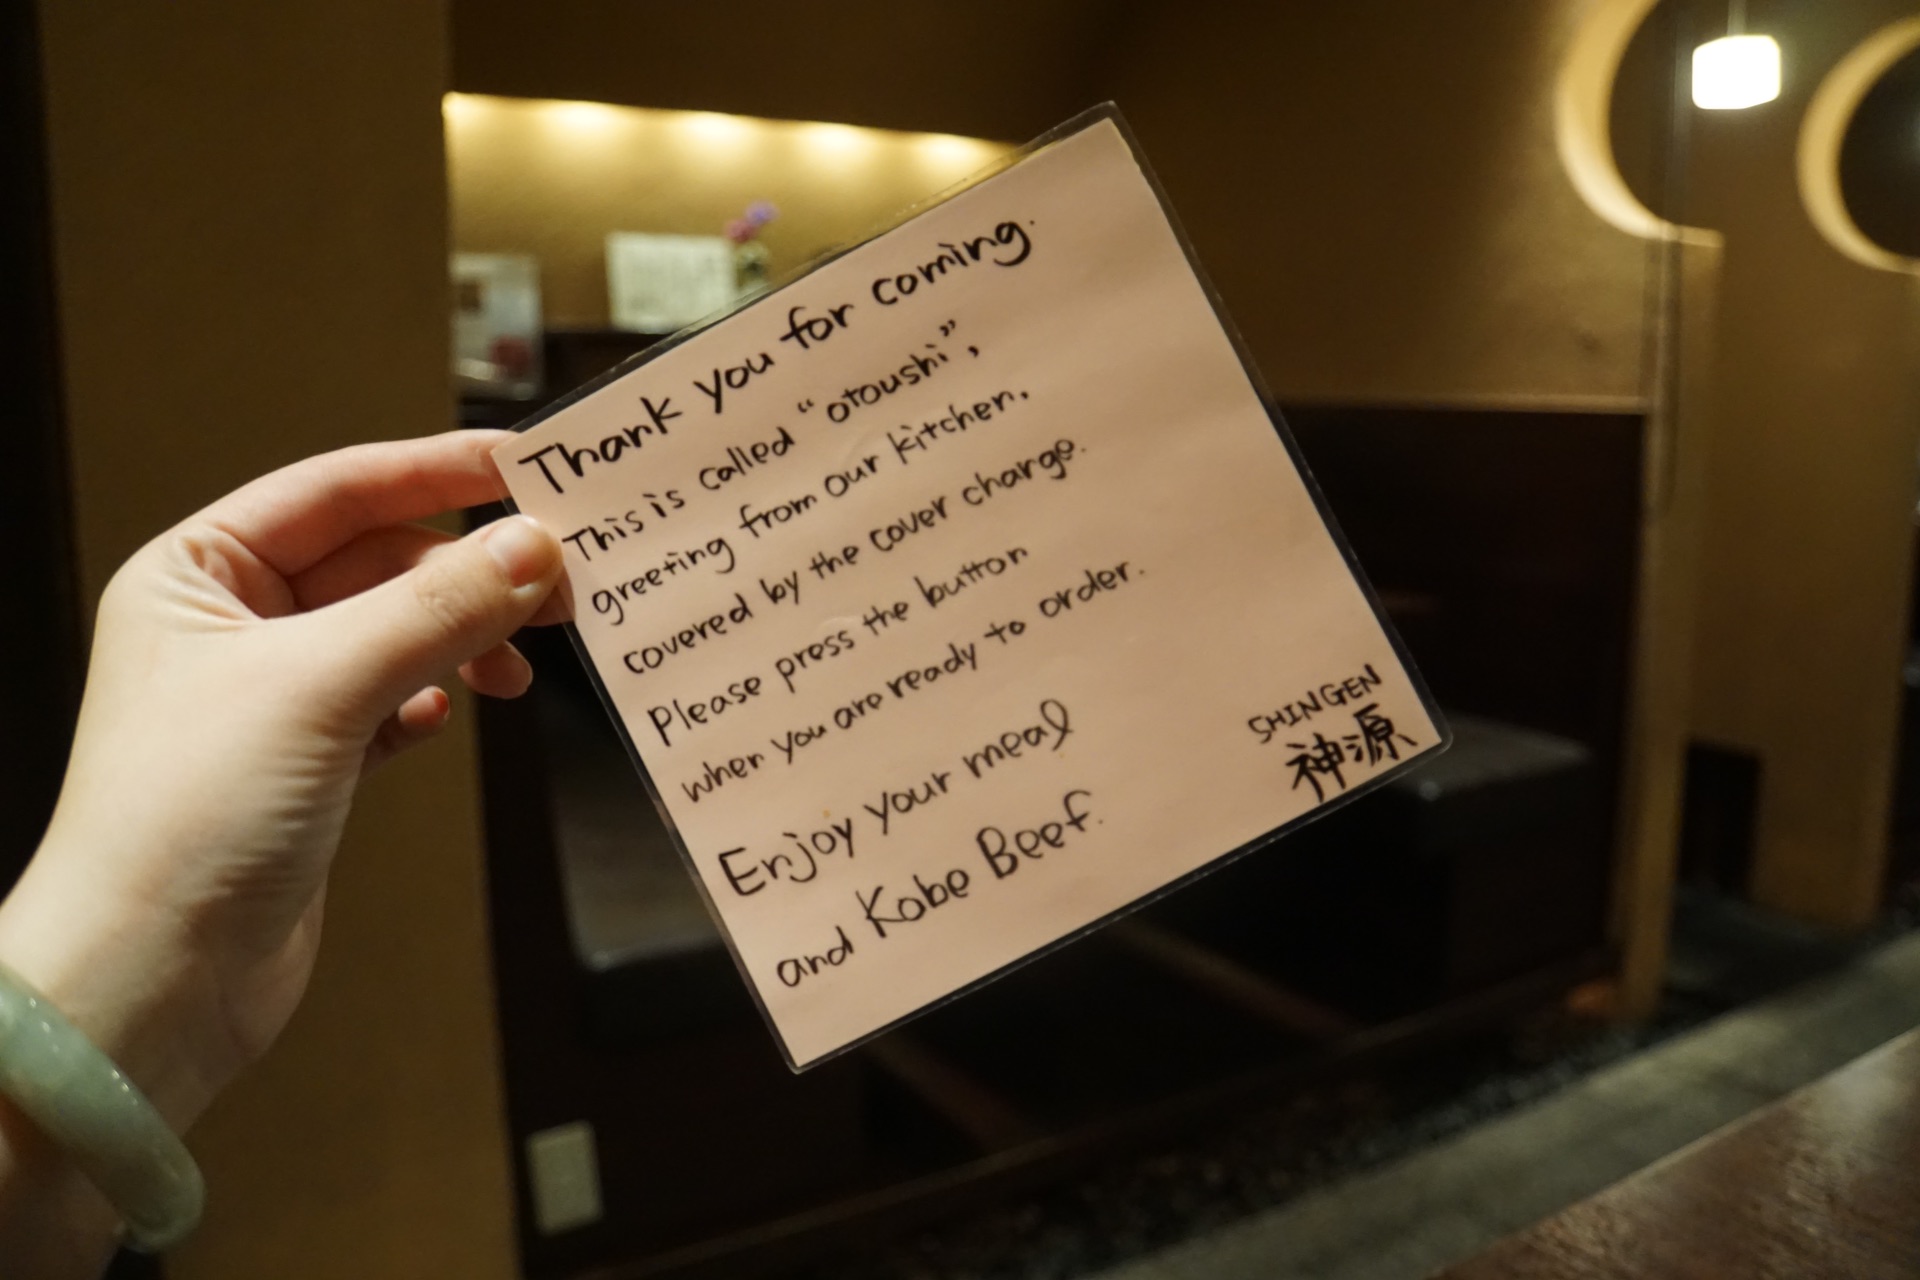 Thank you for coming.
This is called "otoushi",
greeting from our kitchen,
covered by the cover charge.
Please press the button
when you are ready to order.
Enjoy your meal
and Kobe Beef.
SHINGEN
神源